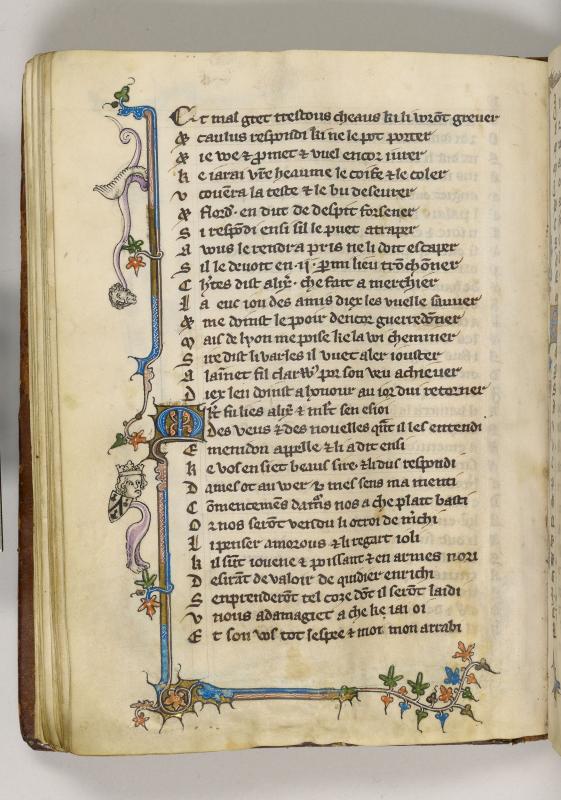 Et mal gret trestous cheaus ki li wrōt grever
& caulus respondi ki ne le pot porter
& ie we & ꝓmet & vuel encor iurer
Ke iarai vr̄e heaume le coife & le coler
v couera la teste & le bu deseurer
& flord' en dut de despit forsener
Si respōdi ensi sil le puet atraper
A wus le rendra pris ne li doit escaper
Sil le devoit en .ij. ꝑmi lieu trōchōner
Ch'tes dist alix' che fait a merchier
La euc iou des amis diex les vuelle sauver
& me doinst le pooir dencor guerredōner
Mais de lyon me poise ke la wi cheminer
Sire dist li varles il vuet aler iouster
A lainnet fil clarw' por son veu achiever
Diex len doinst a honour au ior dui retorner
Mlt fu lies alix' & mlt sen esioi
Des veus & des nouelles qnt il les entendi
Emenidon appelle & li a dit ensi
Ke vos en siet beaus sire & li dus respondi
Dames ot au wer & mes sens ma menti
Cōmencemēs damors nos a che plait basti
Or nos serōt vendu li otroi de mchi
Li penser amorous & li regart ioli
Kil sūt iouene & poissant & en armes nori
Desirāt de valoir de quidier enrichi
Senprenderōt tel coze dōt il serōt laidi
v nous adamagiet a che ke iai oi
Et son vos tot lespee & moi mon arrabi